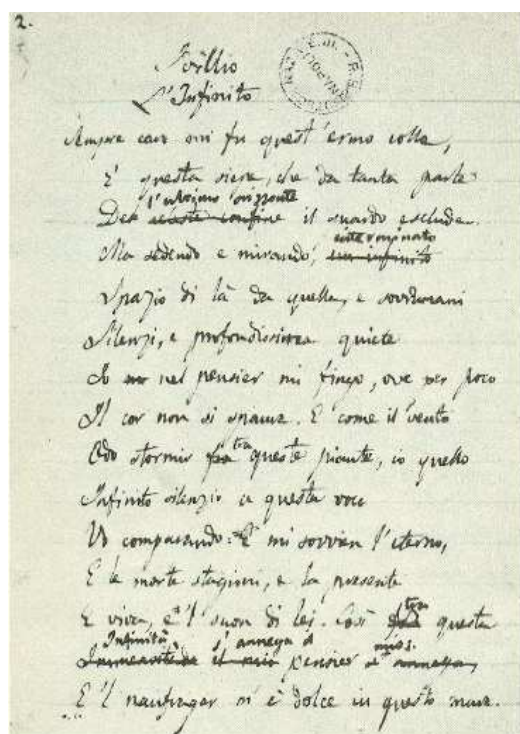 2.
Idillio
L'Infinito
Sempre caro mi fu quest'ermo colle,
E questa siepe, che da tanta parte
l'ultimo orizzonte
Del celeste confine il guardo esclude.
interminato
Ma sedendo e mirando, un infinito
Spazio di là da quella, e sovrumani
Silenzi, e profondissima quiete
Io nel pensier mi fingo, ove per poco
Il cor non si spaura. E come il vento
tra
Odo stormir fra queste piante, io quello
Infinito silenzio a questa voce
Vo comparando: E mi sovvien l'eterno,
E le morte stagioni, e la presente
tra
E viva, e 'l suon di lei. Così fra questa
Infinità s'annega il mio
Immensità il mio pensier s'annega,
E 'l naufragar m'è dolce in questo mare.